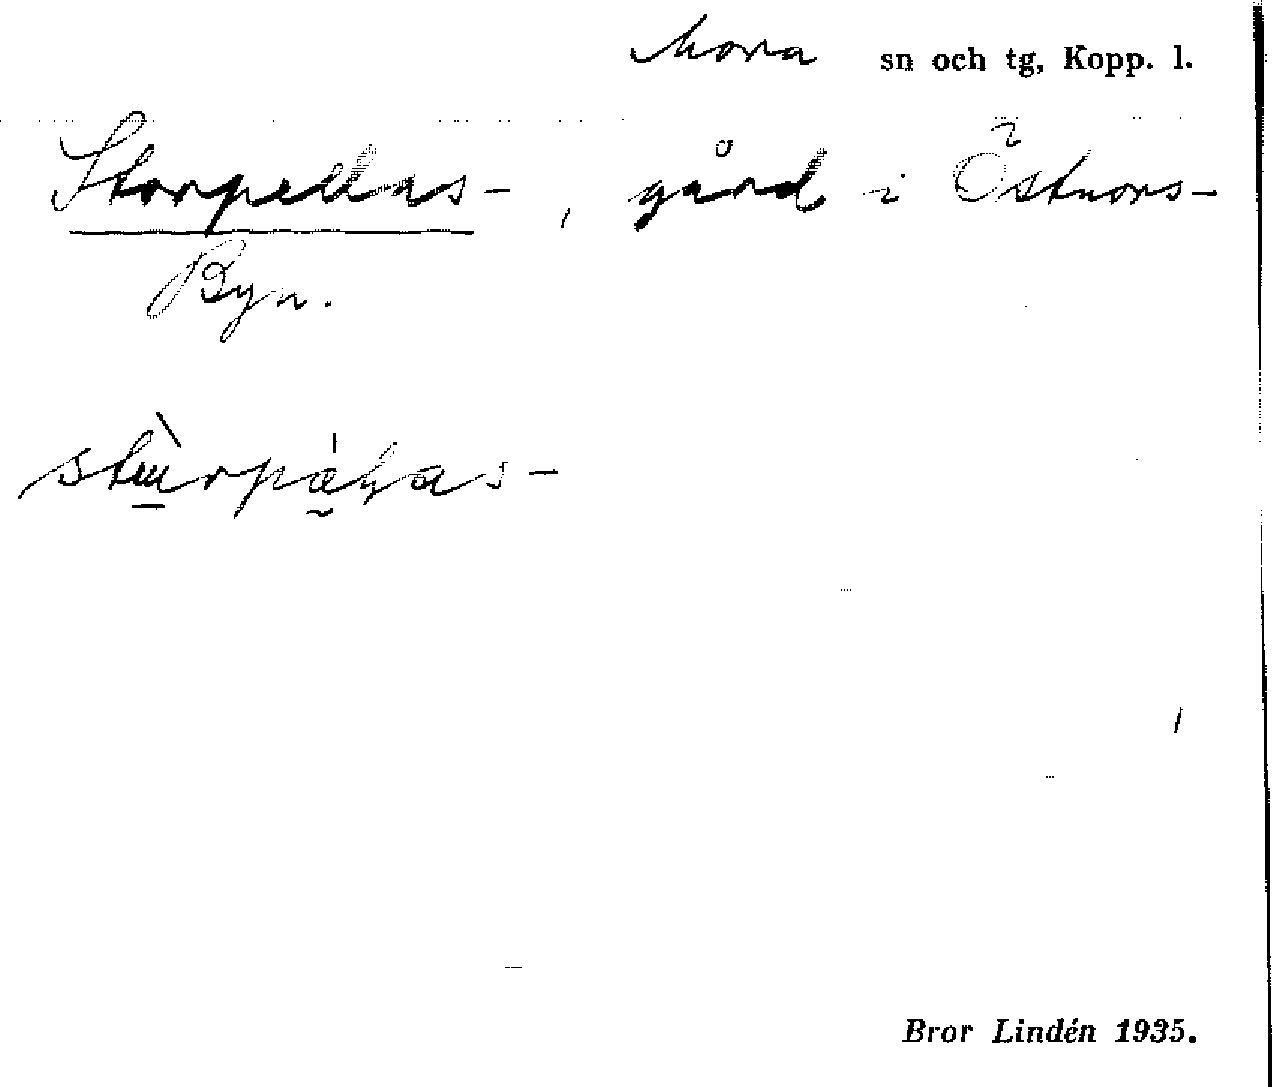 Mora sn och tg, Kopp. l.
Storpellas-, gård i Östnors-
Byn.
Bror Lindén 1935.